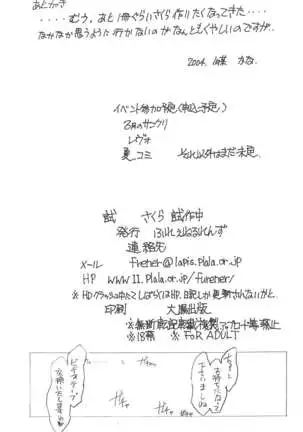 あとがき
････むう、あと1冊ぐらいさくら作りたくなってきた････
なかなか思うように行かないのがなんともくやしいのですが‥
2004.
イベント参加予定(申込予定)
2月のサンクリ
レヴォ
夏コミ それ以外はまだ未定
さくら 試作中
発行 ふれえねるれんず
連絡先
メール freher@lapis.plala.or.jp
HP www11.plala.or.jp/fureher/
※HDクラッシュ中たてしばらくはHP、日記しか更新されないかと。
印刷 大陽出版
※無断転記転載複製アップロード等禁止
※18禁 ※FOR ADULT
ちょっと
お待たになって
下さいましね
ガチャ
ガチャ
ガチャ
ビデオテープ